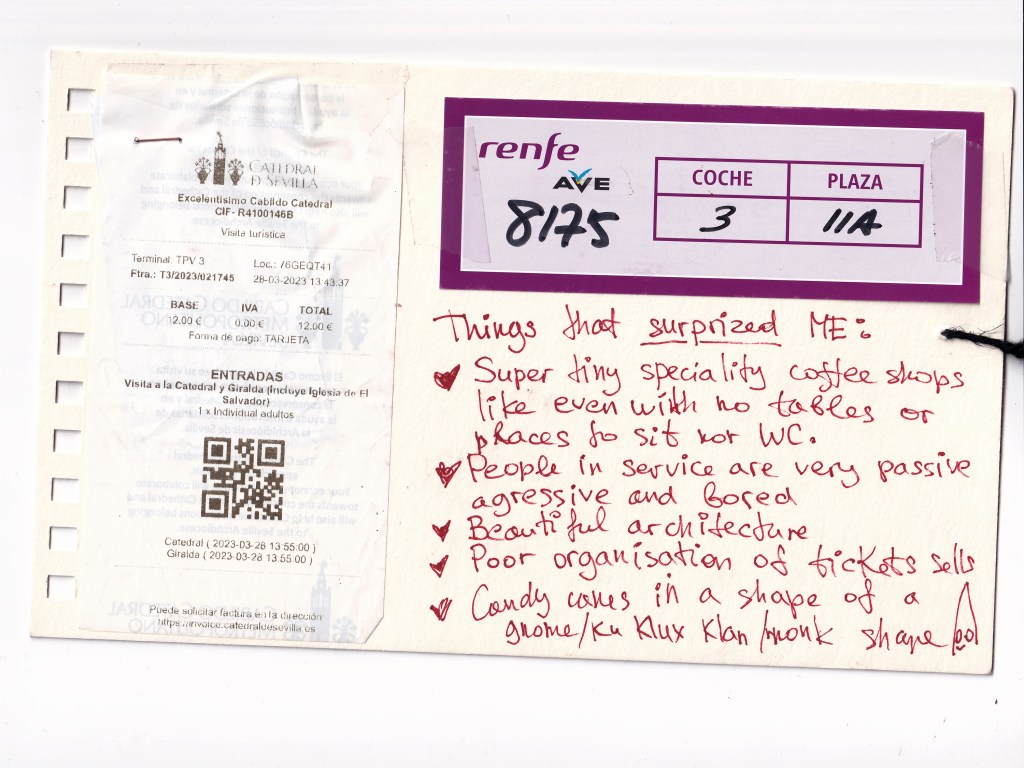 CATEDRAL
D SEVILLA
Excelentísimo Cabildo Catedral
CIF- R4100146B
Visita turística
Terminal: TPV 3 Loc.: 76GEQT41
Ftra.: T3/2023/021745 28-03-2023 13:43:37
BASE IVA TOTAL
12.00 € 0.00 € 12.00 €
Forma de pago: TARJETA
ENTRADAS
Visita a la Catedral y Giralda (Incluye Iglesia de El
Salvador)
1 x Individual adultos
Catedral ( 2023-03-28 13:55:00 )
Giralda ( 2023-03-28 13:55:00 )
Puede solicitar factura en la dirección
https://invoice.catedraldesevilla.es
renfe
AVE
8175
COCHE PLAZA
3 11A
Things that surprized ME:
Super tiny speciality coffee shops
like even with no tables or
places to sit nor WC.
People in service are very passive
agressive and bored
Beautiful architecture
Poor organisation of tickets sells
Candy canes in a shape of a
gnome/Ku Klux Klan/monk shape